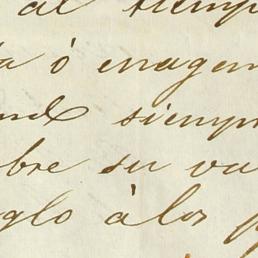 al tiemp
ta ó enagen
and siempr
bre su va
glo à los p